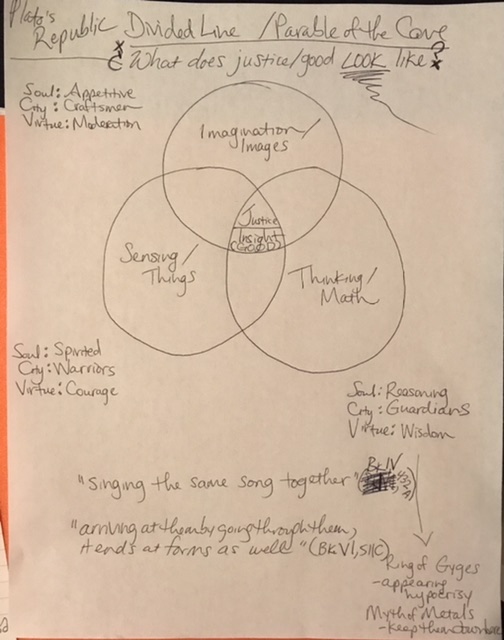 Plato's
Republic
Divided Line / Parable of the Cave
What does justice/good LOOK like?
Soul: Appetitive
City: Craftsmen
Virtue: Moderation
Imagination/
Images
Justice
Insight
(GOOD)
Sensing/
Things
Thinking/
Math
Soul: Spirited
City: Warriors
Virtue: Courage
Soul: Reasoning
City: Guardians
Virtue: Wisdom
"Singing the same song together" (Bk IV
"arriving at them by going through them,
it ends at forms as well" (Bk VI, 511C)
Ring of Gyges
-appearing
hypocrisy
Myth of Metals
-keep them down